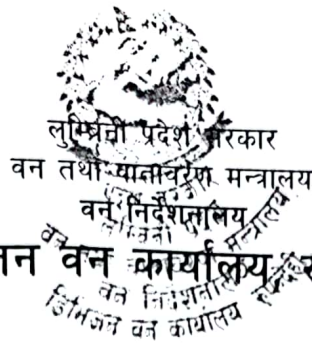 लुम्बिनी प्रदेश सरकार
वन तथा वातावरण मन्त्रालय
वन निर्देशनालय
वन कार्यालय
वन निर्देशनालय
डिभिजन वन कार्यालय